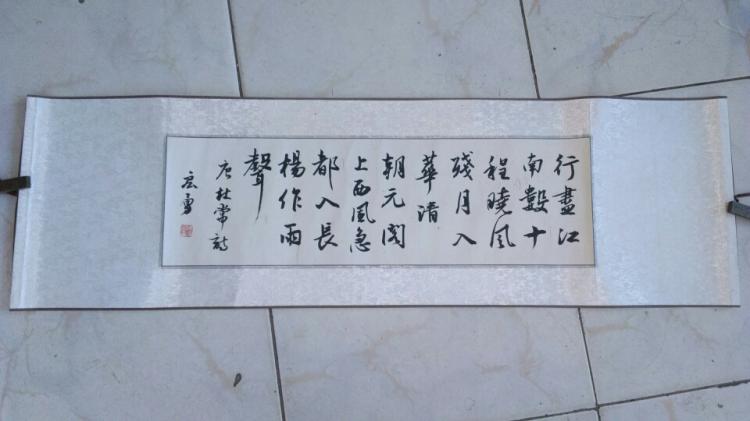 行盡江
南數十
程曉風
殘月入
華清
朝元閣
上西風急
都入長
楊作雨
聲
唐杜常詩
宏勇